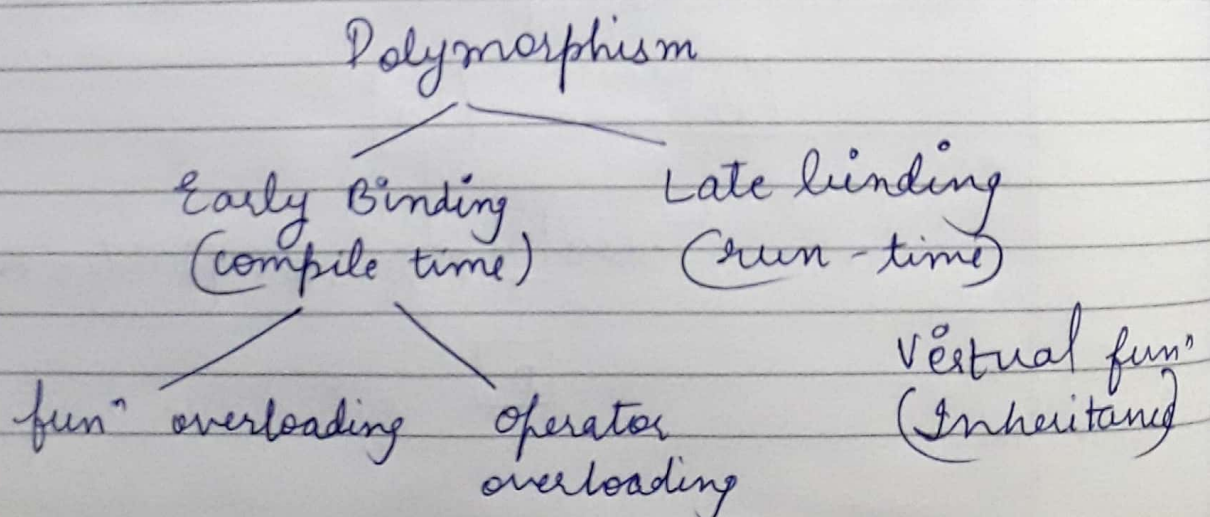 Polymorphism
Early Binding
(compile time)
Late binding
(run-time)
funⁿ overloading
operator
overloading
Virtual funⁿ
(Inheritance)